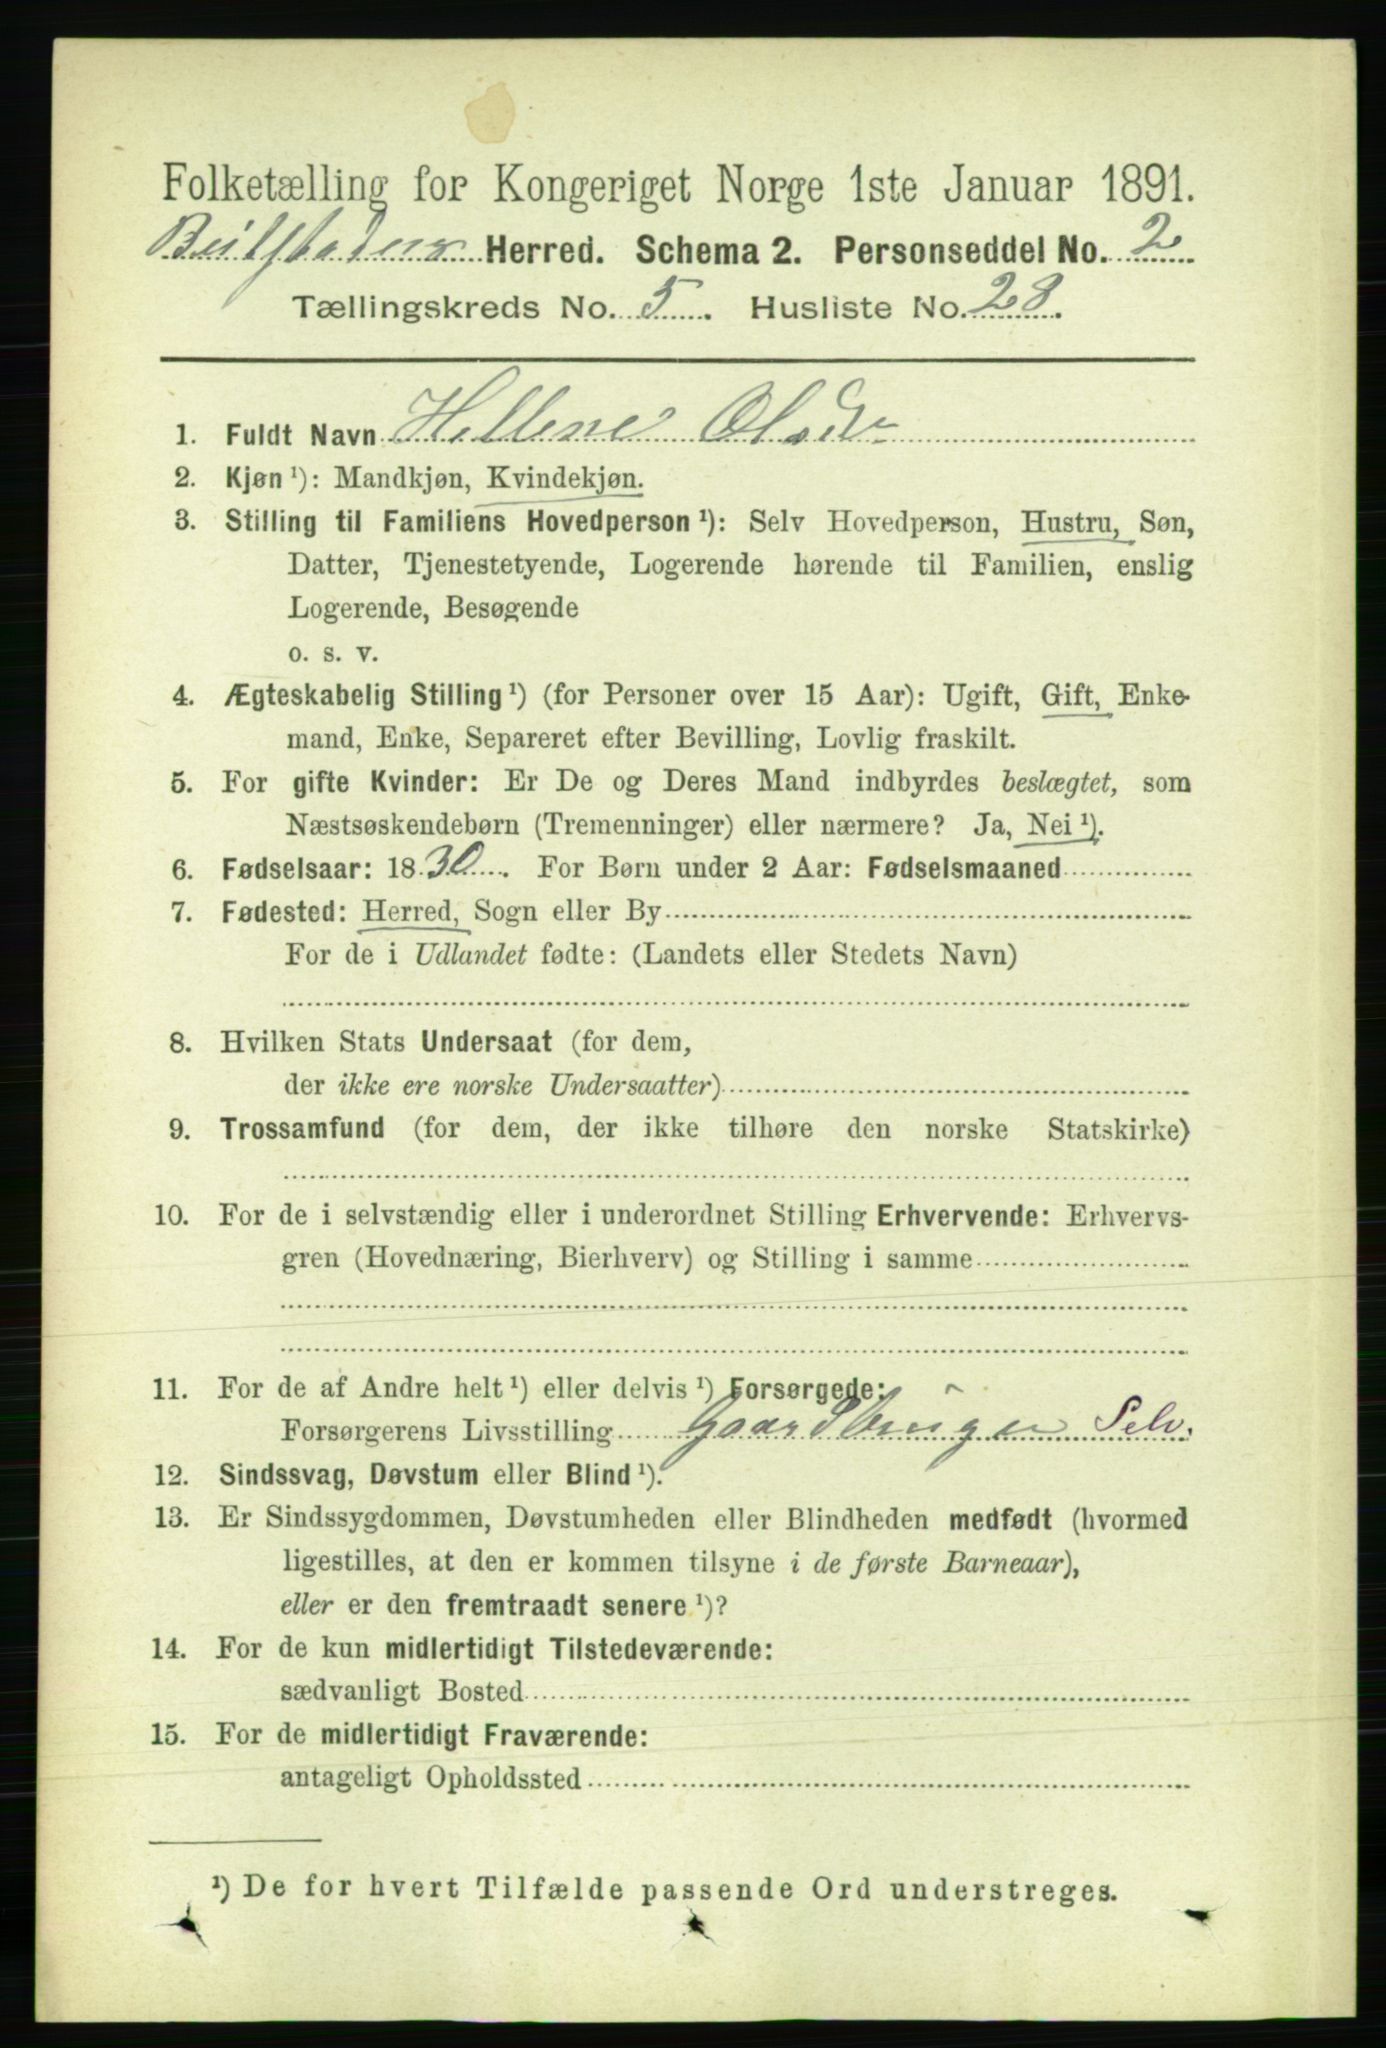 Folketælling for Kongeriget Norge 1ste Januar 1891.
Beitstaden Herred. Schema 2. Personseddel No. 2
Tællingskreds No. 5. Husliste No. 28.
1. Fuldt Navn Hellene Olsdtr
2. Kjøn ¹): Mandkjøn, Kvindekjøn.
3. Stilling til Familiens Hovedperson ¹): Selv Hovedperson, Hustru, Søn,
Datter, Tjenestetyende, Logerende hørende til Familien, enslig
Logerende, Besøgende
o. s. v.
4. Ægteskabelig Stilling ¹) (for Personer over 15 Aar): Ugift, Gift, Enke-
mand, Enke, Separeret efter Bevilling, Lovlig fraskilt.
5. For gifte Kvinder: Er De og Deres Mand indbyrdes beslægtet, som
Næstsøskendebørn (Tremenninger) eller nærmere? Ja, Nei ¹).
6. Fødselsaar: 1830. For Børn under 2 Aar: Fødselsmaaned
7. Fødested: Herred, Sogn eller By
For de i Udlandet fødte: (Landets eller Stedets Navn)
8. Hvilken Stats Undersaat (for dem,
der ikke ere norske Undersaatter)
9. Trossamfund (for dem, der ikke tilhøre den norske Statskirke)
10. For de i selvstændig eller i underordnet Stilling Erhvervende: Erhvervs-
gren (Hovednæring, Bierhverv) og Stilling i samme
11. For de af Andre helt ¹) eller delvis ¹) Forsørgede:
Forsørgerens Livsstilling Gaardbruger Selv.
12. Sindssvag, Døvstum eller Blind ¹).
13. Er Sindssygdommen, Døvstumheden eller Blindheden medfødt (hvormed
ligestilles, at den er kommen tilsyne i de første Barneaar),
eller er den fremtraadt senere ¹)?
14. For de kun midlertidigt Tilstedeværende:
sædvanligt Bosted
15. For de midlertidigt Fraværende:
antageligt Opholdssted
¹) De for hvert Tilfælde passende Ord understreges.